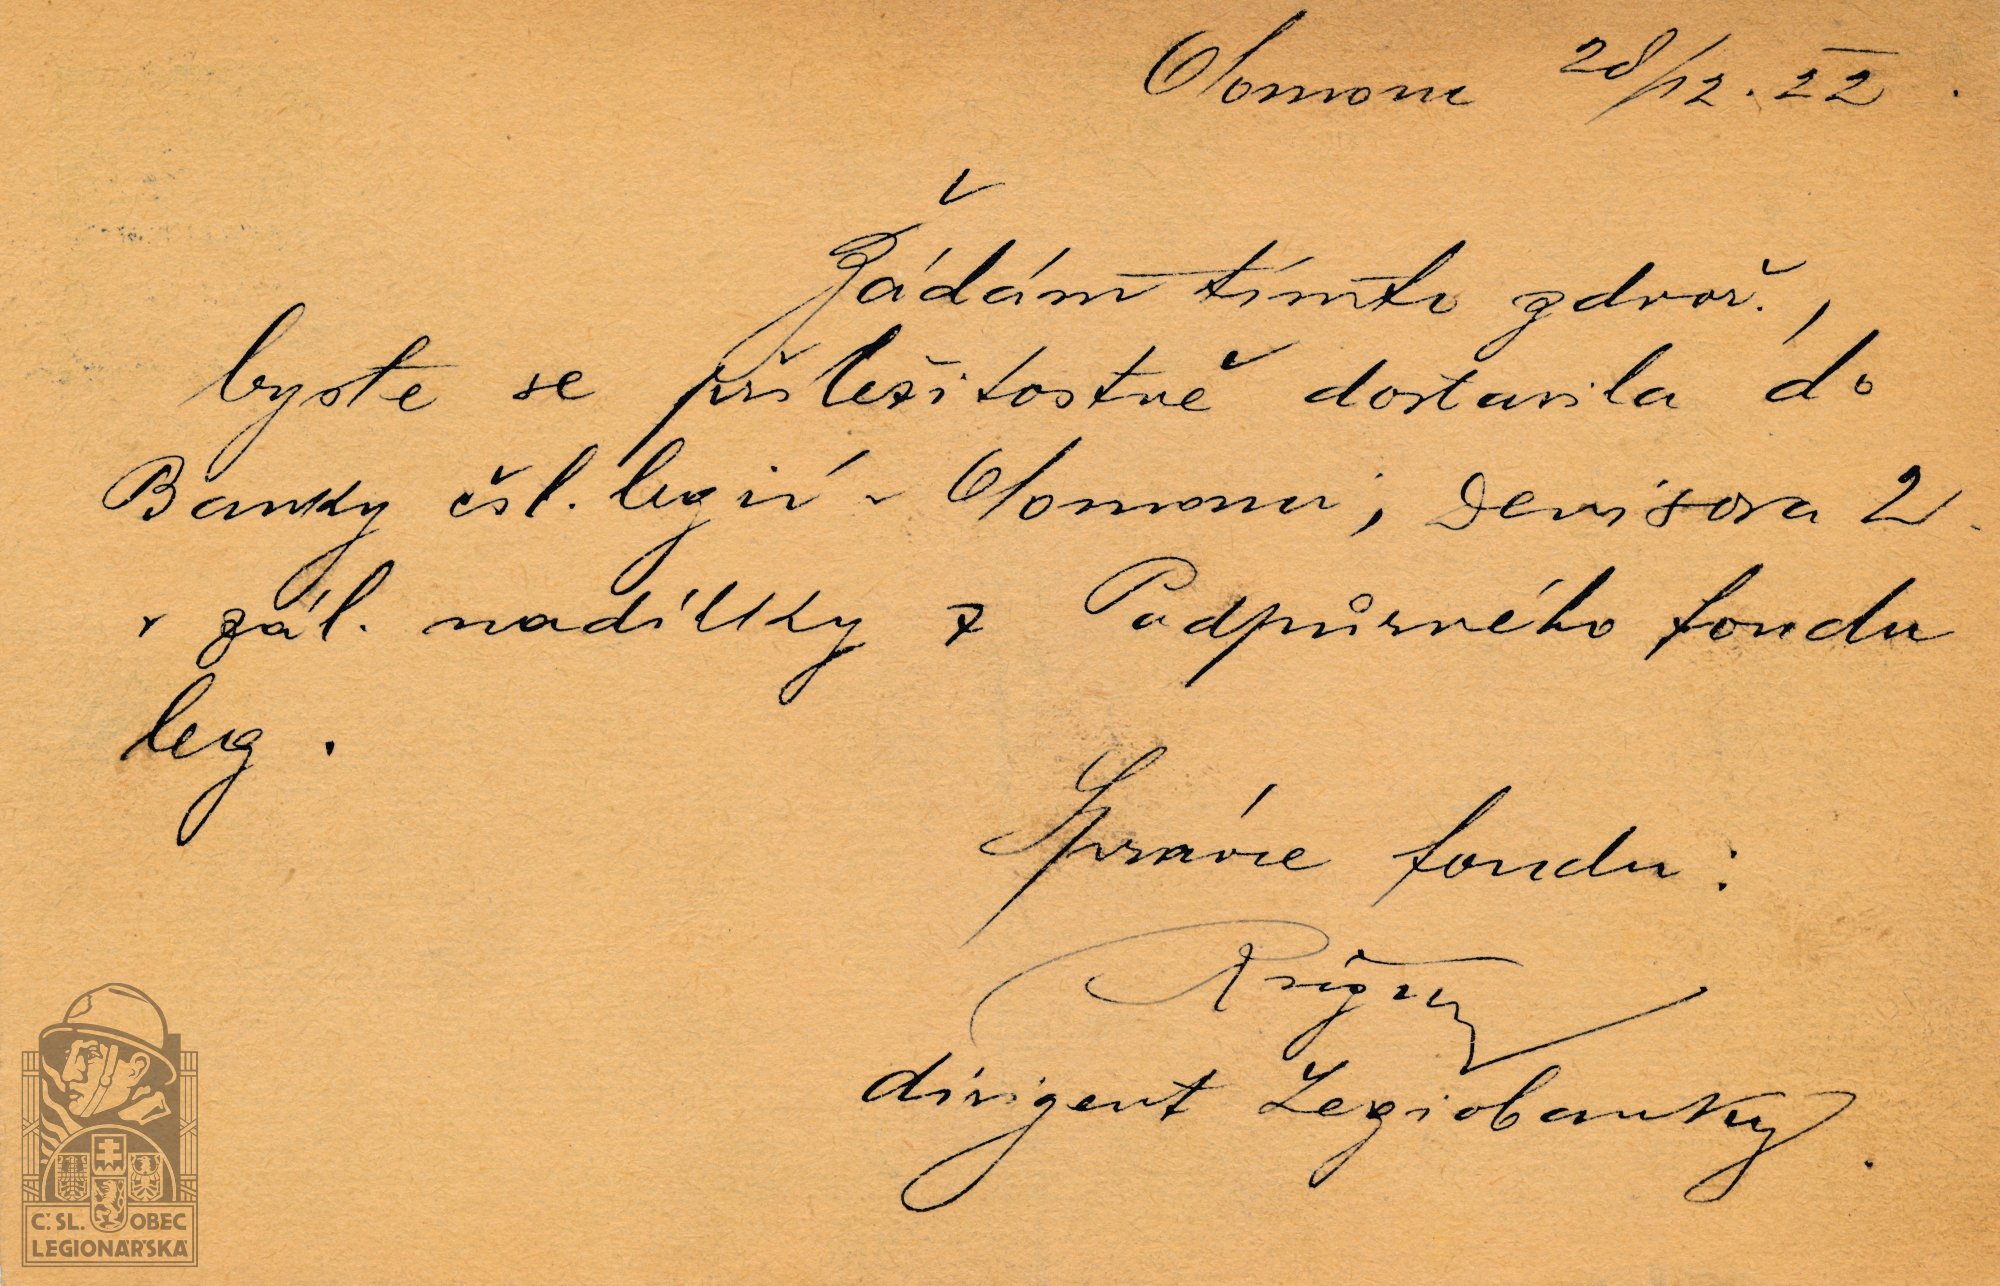 Olomouc 28/12. 22.
Žádám tímto zdvoř.,
byste se příležitostně dostavila do
Banky čsl. legií v Olomouci, Denisova 2.
v zál. nadílky z Podpůrného fondu
leg.
Správce fondu:
dirigent Legiobanky.
Č. SL. OBEC
LEGIONÁŘSKÁ